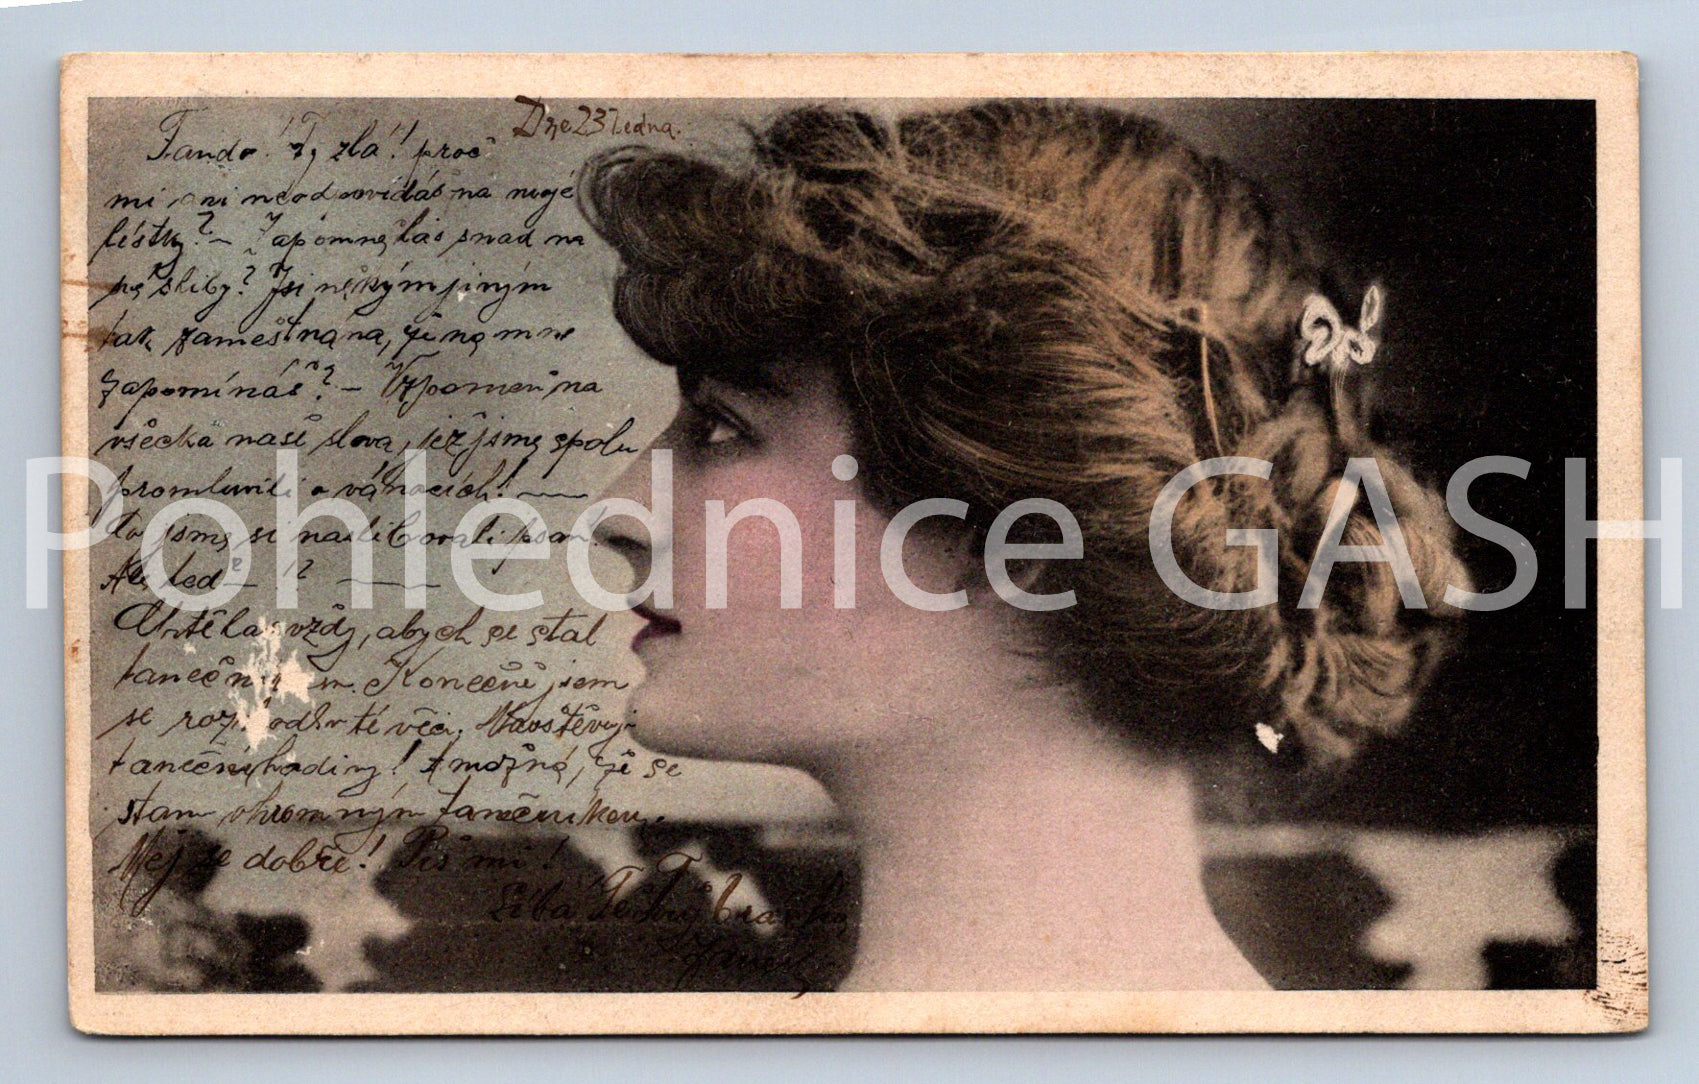 Dne 23 ledna.
Fando! Ty zlá! proč
mi ani neodpovídáš na moje
lístky? — Zapomnělas snad na
přísliby? Jsi někým jiným
tak zaměstnána, že na mne
zapomínáš? — Vzpomeň na
všecka naše slova, jež jsme spolu
promluvili o vánocích! —
to jsme si naslibovali psaní!
Ale teď — !? —
Chtělas vždy, abych se stal
tanečníkem. Konečně jsem
se rozhodl té věci. Navštěvuji
taneční hodiny! A možná, že se
stanu ohromným tanečníkem.
Měj se dobře! Piš mi!
Líbá Tě Tvůj
Pohlednice GASH